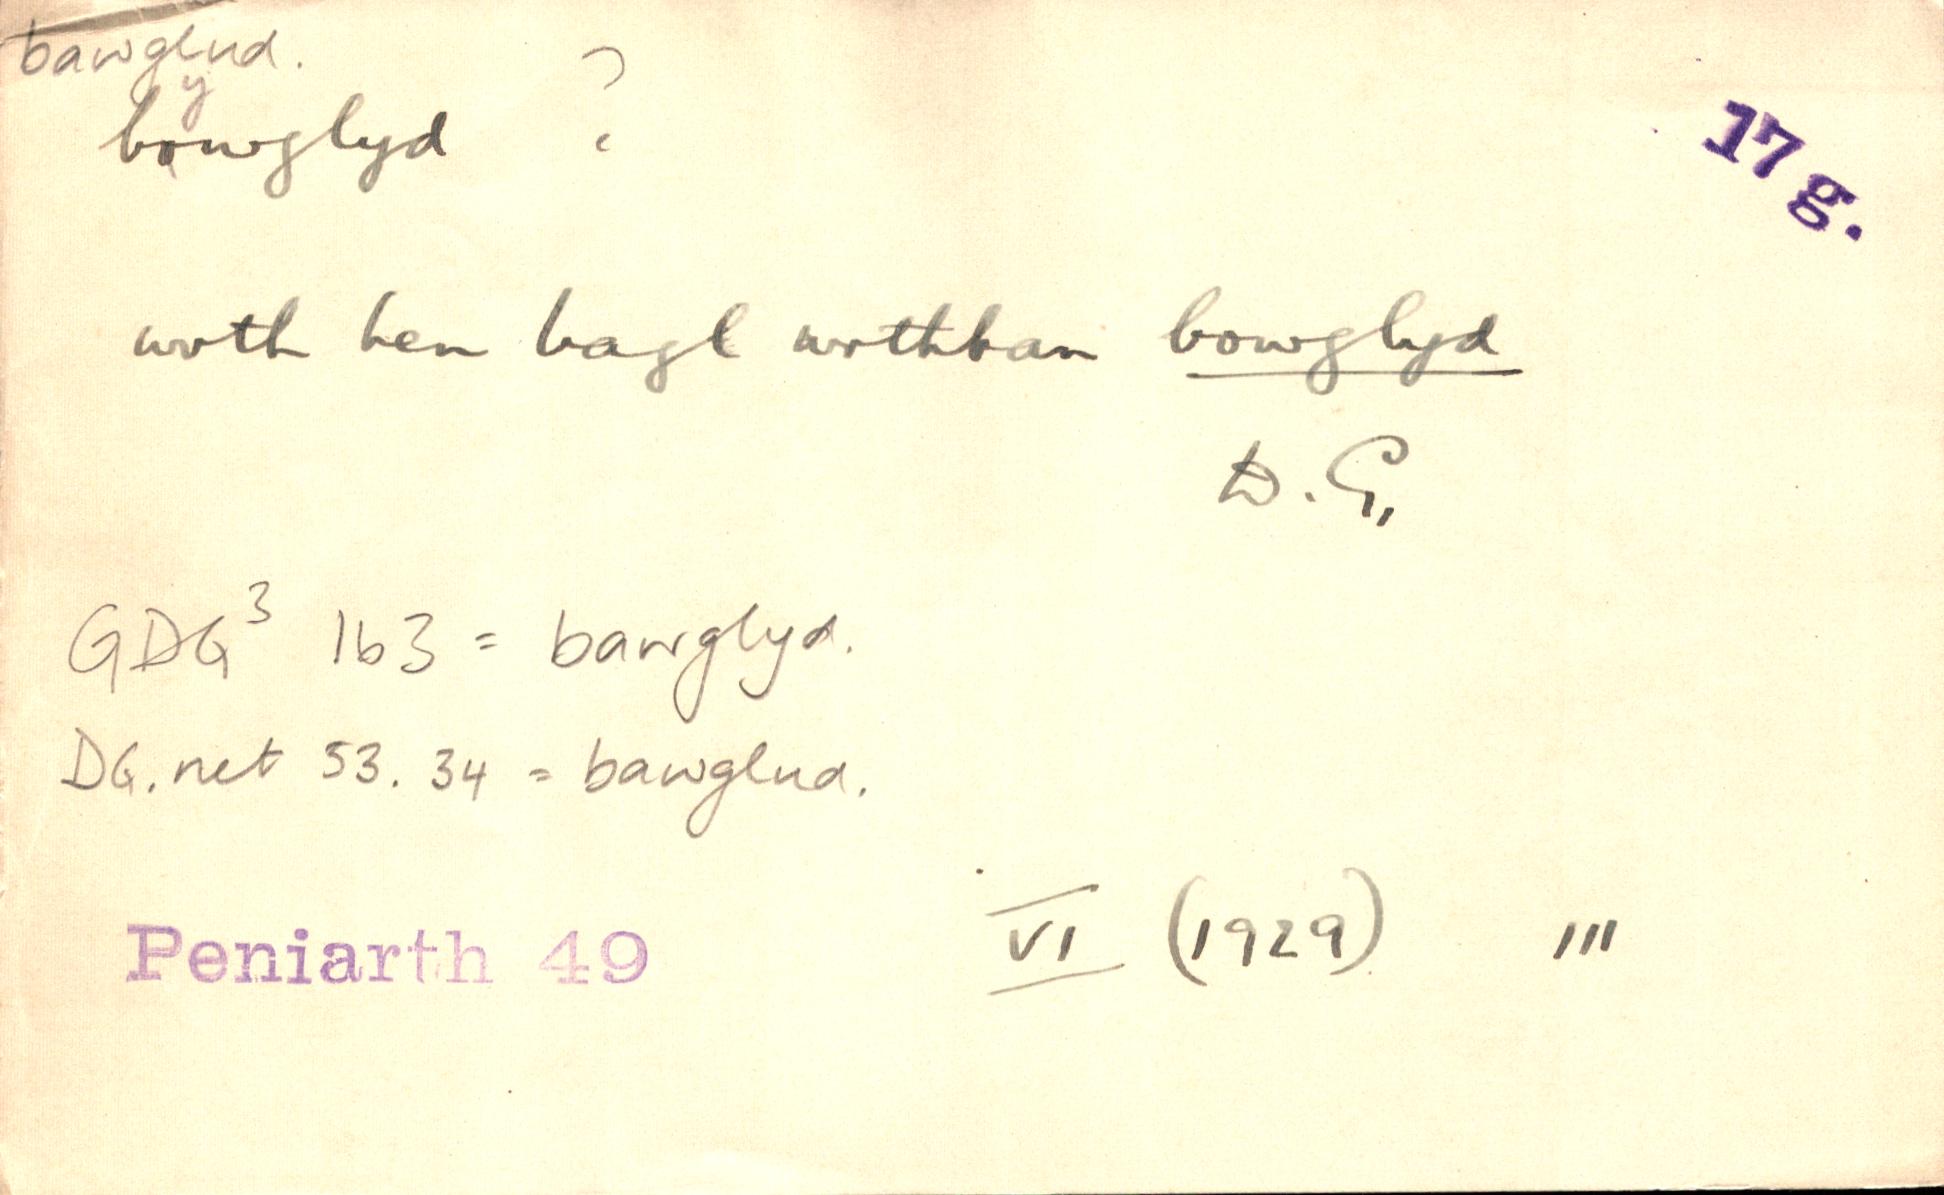 bawglud.
y
bowglyd ?
17 g.
wrth hen bagl wrthban bowglyd
D. G.
GDG³ 163 = bawglyd.
DG.net 53.34 = bawglud.
Peniarth 49 VI (1929) 111